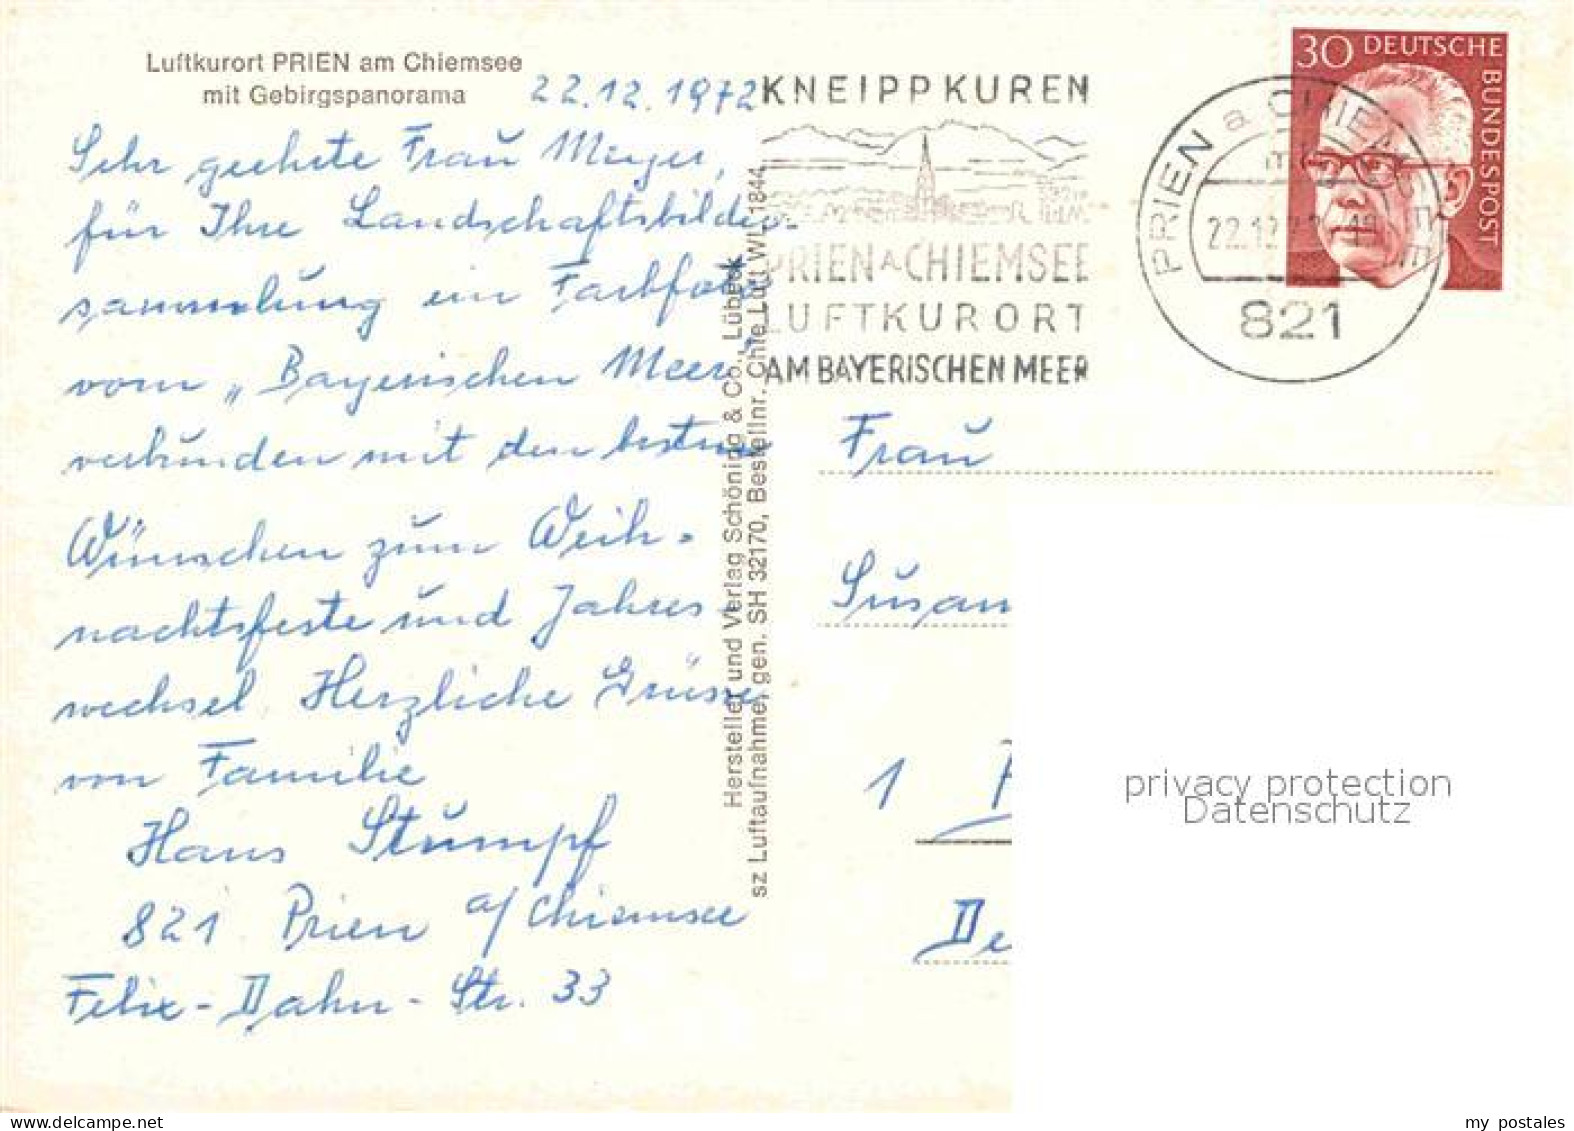 Luftkurort PRIEN am Chiemsee
mit Gebirgspanorama
22.12.1972
Sehr geehrte Frau Meyer,
für Ihre Landschaftsbilder-
sammlung ein Farbfoto
vom „Bayerischen Meer"
verbunden mit den besten
Wünschen zum Weih-
nachtsfeste und Jahres
wechsel. Herzliche Grüsse
von Familie
Hans Stumpf
821 Prien a/Chiemsee
Felix-Dahn-Str. 33
Hersteller und Verlag Schöning & Co., Lübeck
sz Luftaufnahme, gen. SH 32170, Bestellnr. Chie Luft WL 1844
KNEIPPKUREN
PRIEN A CHIEMSEE
LUFTKURORT
AM BAYERISCHEN MEER
PRIEN a CHIEMSEE
22.12.72
821
30 DEUTSCHE
BUNDESPOST
Frau
Susan
1
De
privacy protection
Datenschutz
delcampe.net
my_postales